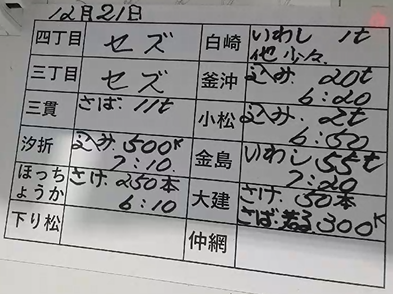 12月21日
四丁目 セズ 白崎 いわし 1t
他少々
三丁目 セズ 釜沖 込み 20t
6:20
三貫 さば 11t 小松 込み 2t
6:50
汐折 込み 500K 金島 いわし 55t
7:10 7:20
ほっちょうか さけ 250本 大建 さけ 50本
6:10 さば 300K
下り松 仲網